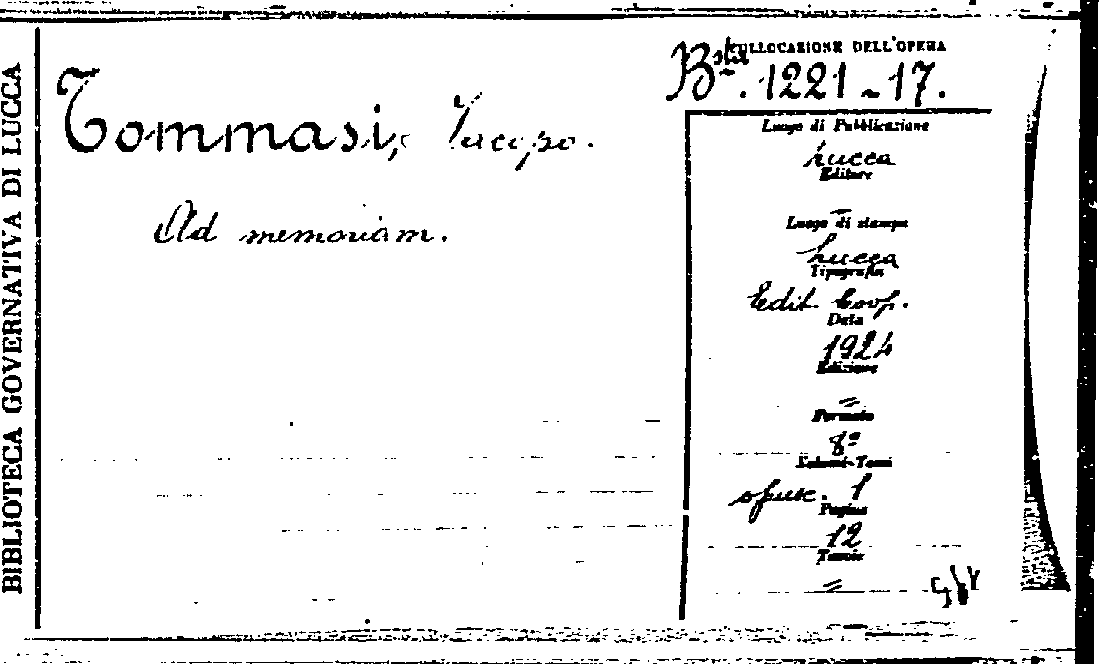 BIBLIOTECA GOVERNATIVA DI LUCCA
Tommasi, Iacopo.
Ad memoriam.
COLLOCAZIONE DELL'OPERA
Bta. 1221-17.
Luogo di Pubblicazione
Lucca
Editore
=
Luogo di stampa
Lucca
Tipografia
Edit. Coop.
Data
1924
Edizione
=
Formato
8º
Volumi-Tomi
opusc. 1
Pagine
12
Tavole
=